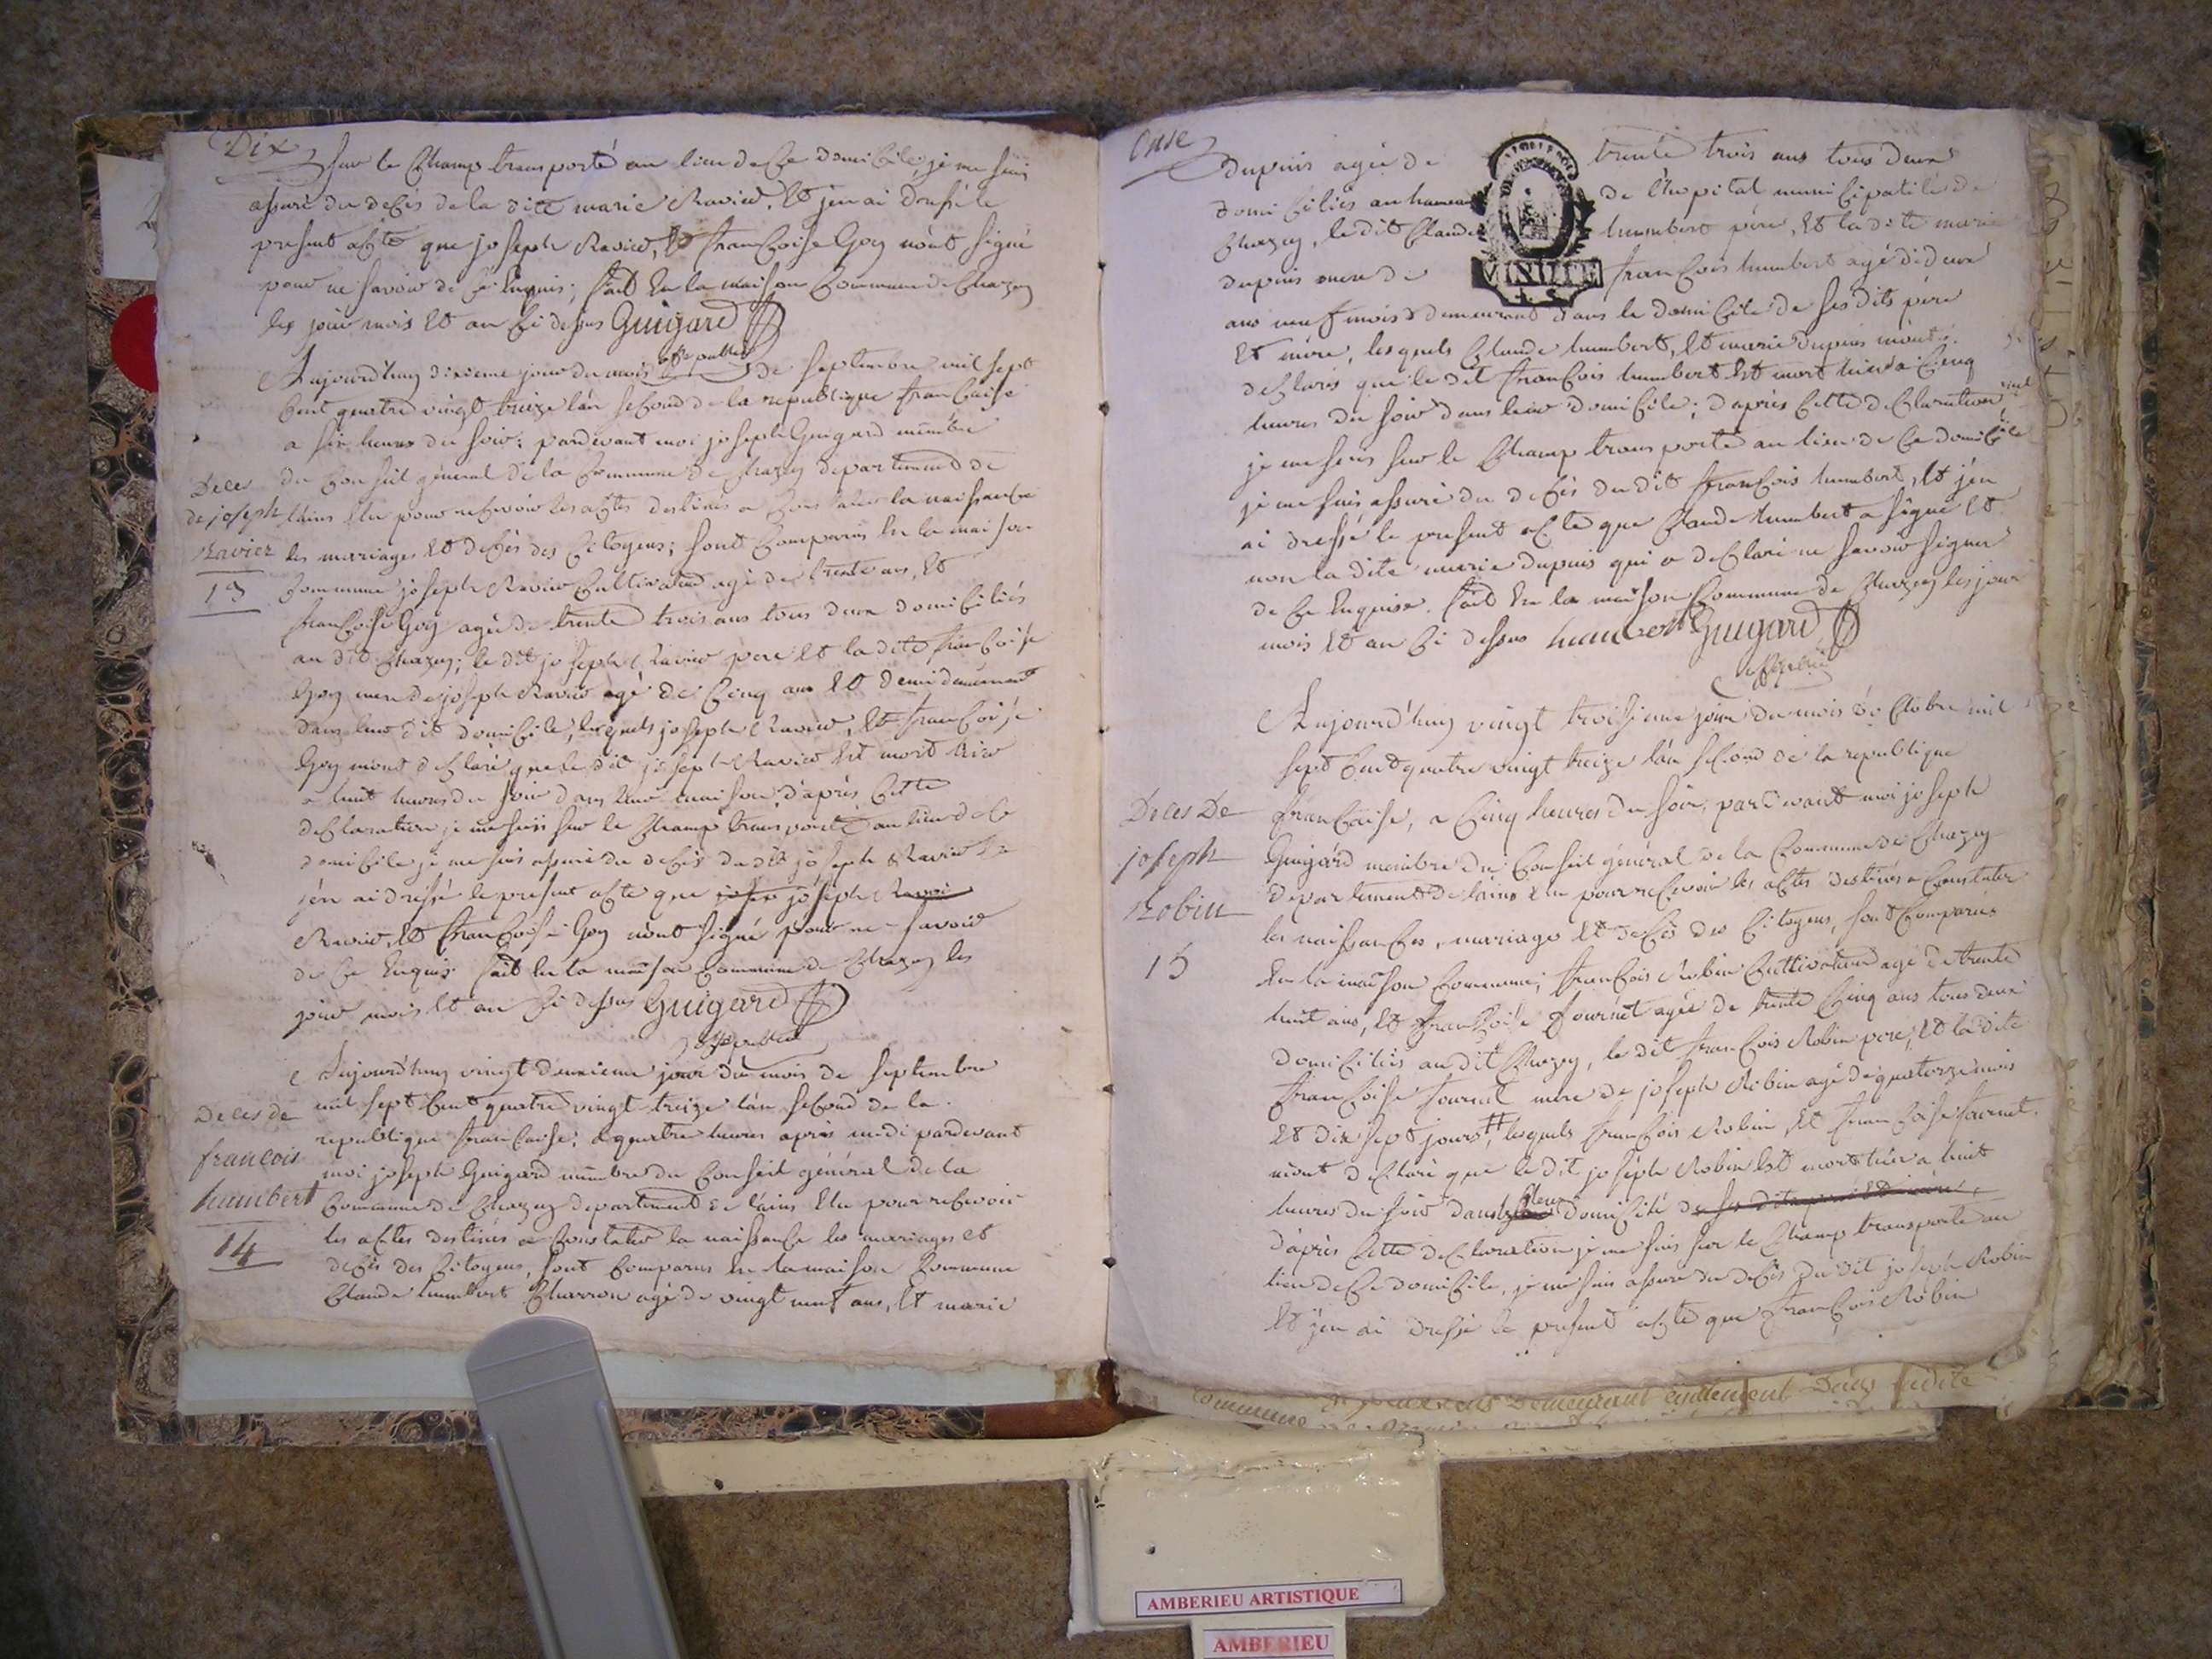 Dix
sur le Champ transporté au lieu de Ce domiCile, je me suis
assuré du deCès de la dite marie Ravier. Et j'en ai dressé le
present aCte que joseph Ravier, Et franCoise Goy n'ont signé
pour ne savoir de Ce Enquis; fait En la maison Commune de Chazey
les jour mois Et an Ci dessus Guigard
offi public
Aujourd'huy dixieme jour du mois de septembre mil sept
Cent quatre vingt treize l'an seCond de la republique franCaise
a six heures du soir; pardevant moi joseph Guigard membre
du Conseil général de la Commune de Chazey departement de
l'ains Elu pour reCevoir les aCtes destinés a Constater la naissanCe
les mariages Et deCès des Citoyens; sont Comparus En la maison
Commune joseph Ravier Cultivateur agé de trente ans, Et
franCoise Goy agée de trente trois ans tous deux domiCiliés
au dit Chazey; le dit joseph Ravier pere Et la dite franCoise
Goy mere de joseph Ravier agé de Cinq ans Et demi demeurant
dans leur dit domiCile, lesquels joseph Ravier, Et franCoise
Goy m'ont deClaré que le dit joseph Ravier Est mort hier
a huit heures du soir dans leur maison, d'après Cette
deClaration je me suis sur le Champ transporté au lieu de Ce
domiCile je me suis assuré du deCès du dit joseph Ravier Et
j'en ai dressé le present aCte que joseph
Ravier, Et franCoise Goy n'ont signé pour ne savoir
de Ce Enquis. fait En la maison Commune de Chazey les
jour mois Et an Ci dessus Guigard
offi public
Deces
de joseph
Ravier
13
Aujourd'huy vingt deuxieme jour du mois de septembre
mil sept Cent quatre vingt treize l'an seCond de la
republique franCaise; a quatre heures après midi pardevant
moi joseph Guigard membre du Conseil général de la
Commune de Chazey departement de l'ains Elu pour reCevoir
les aCtes destinés a Constater la naissanCe les mariages et
deCès des Citoyens, sont Comparus En la maison Commune
Claude humbert Charron agé de vingt neuf ans, Et marie
Deces de
francois
humbert
14
Onse
dupuis agée de trente trois ans tous deux
domiCiliés au hameau de l'hopital muniCipalité de
Chazey, le dit Claude humbert père, Et la dite marie
dupuis mere de franCois humbert agé de deux
MINUTE
ans neuf mois demeurant dans le domiCile de ses dits père
Et mère, lesquels Claude humbert, Et marie dupuis m'ont
deClarés que le dit franCois humbert Est mort hier a Cinq
heures du soir dans leur domiCile; d'après Cette deClaration
je me suis sur le Champ transporté au lieu de Ce domiCile
je me suis assuré du deCès du dit franCois humbert, Et j'en
ai dressé le present aCte que Claude humbert a signé Et
non la dite marie dupuis qui a deClaré ne savoir signer
de Ce Enquise. fait En la maison Commune de Chazey les jour
mois Et an Ci dessus humbert Guigard
off public
Aujourd'huy vingt troisieme jour du mois d'oCtobre mil
sept Cent quatre vingt treize l'an seCond de la republique
franCaise, a Cinq heures du soir, pardevant moi joseph
Guigard membre du Conseil général de la Commune de Chazey
departement de l'ains Elu pour reCevoir les aCtes destinés a Constater
les naissanCes, mariages Et deCès des Citoyens, sont Comparus
En la maison Commune; franCois Robin Cultivateur agé de trente
huit ans, Et franCoise fournet agée de trente Cinq ans tous deux
domiCiliés au dit Chazey, le dit franCois Robin pere, Et la dite
franCoise fournet mere de joseph Robin agé de quatorze mois
Et dix sept jours, lesquels franCois Robin, Et franCoise fournet
m'ont deClaré que le dit joseph Robin Est mort hier a huit
heures du soir dans leur domiCile de ses dits père Et mère,
d'après Cette deClaration je me suis sur le Champ transporté au
lieu de Ce domiCile, je me suis assuré du deCès du dit joseph Robin
Et j'en ai dressé le present aCte que franCois Robin
Deces De
joseph
Robin
15
Commune demeurant egalement Dans ladite
AMBERIEU ARTISTIQUE
AMBERIEU